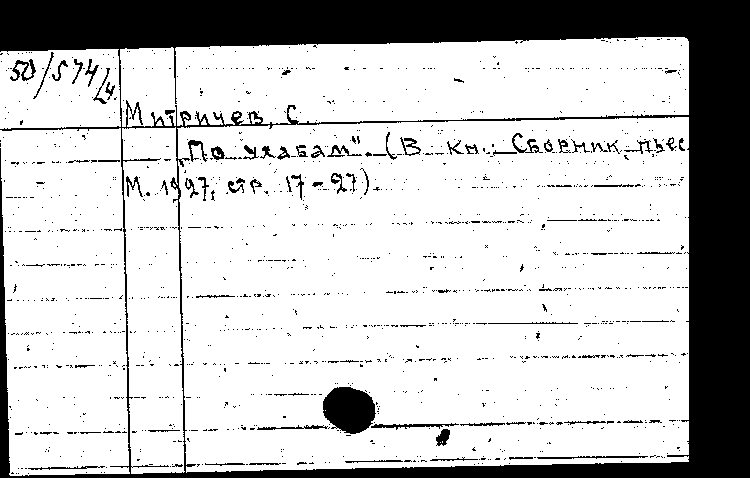 50/574/4
Митричев, С.
"По ухабам". (В кн.: Сборник пьес
М. 1927, стр. 17-27).